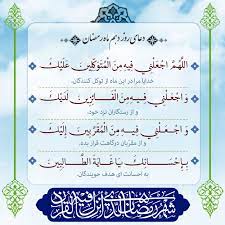 دعای روز دهم ماه رمضان
اللَّهُمَّ اجْعَلْنِي فِيهِ مِنَ الْمُتَوَكِّلِينَ عَلَيْكَ
خدایا مرا در این ماه از توکل کنندگان،
وَ اجْعَلْنِي فِيهِ مِنَ الْفَائِزِينَ لَدَيْكَ
و از رستگاران نزد خود،
وَ اجْعَلْنِي فِيهِ مِنَ الْمُقَرَّبِينَ إِلَيْكَ
و از مقربان درگاهت قرار بده.
بِإِحْسَانِكَ يَا غَايَةَ الطَّالِبِينَ
به احسانت ای هدف جویندگان.
شهر رمضان الذی انزل فیه القرآن